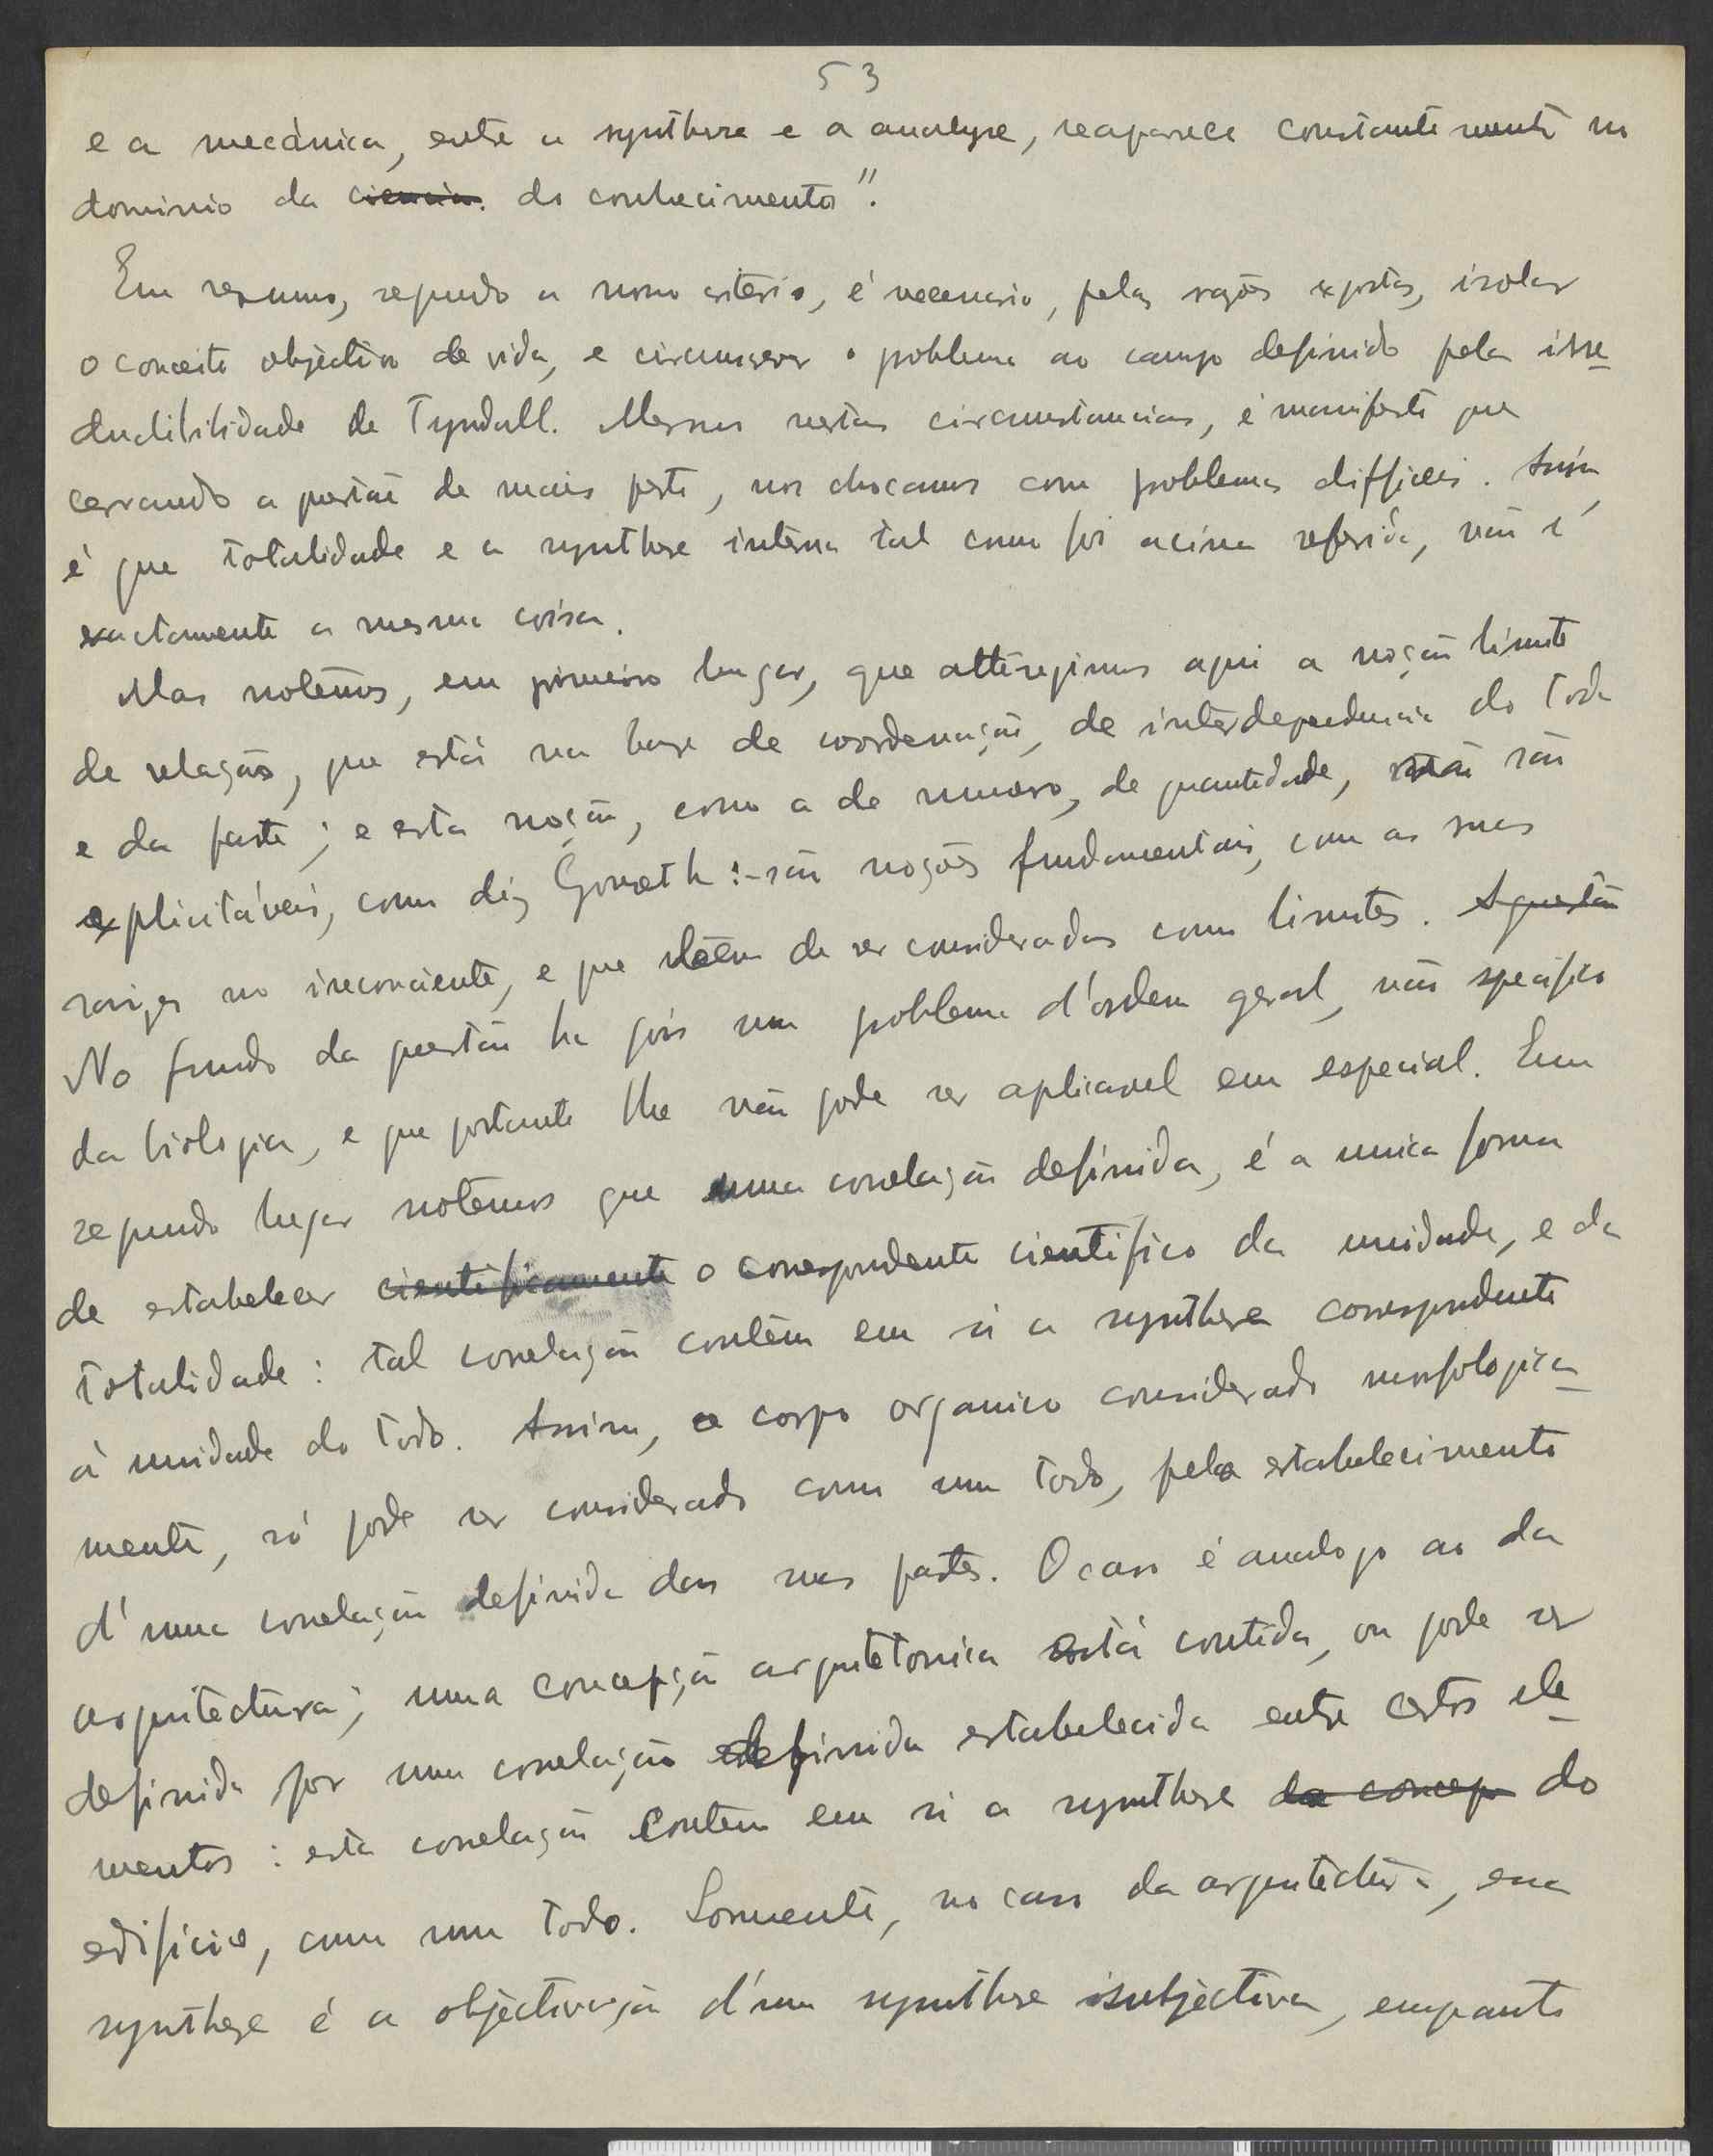 53
e a mecánica, entre a synthese e a analyse, reaparece constantemente no
dominio da ciencia. do conhecimento".
Em resumo, segundo o nosso criterio, é necessario, pelas razões expostas, isolar
o conceito objectivo de vida, e circunscrever o problema ao campo definido pela irre-
ductibilidade de Tyndall. Mesmo nestas circumstancias, é manifesto que
cerrando a questão de mais perto, nos chocamos com problemas difficeis. Assim
é que totalidade e a synthese interna tal como foi acima referida, não é
exactamente a mesma coisa.
Mas notemos, em primeiro lugar, que attingimos aqui a noção limite
de relação, que está na base de coordenação, de interdependencia do todo
e da parte; e esta noção, como a de numero, de quantidade, não são
explicitáveis, como diz :-são noções fundamentais, com as suas
raizes no inconsciente, e que teem de ser consideradas como limites. A questão
No fundo da questão ha pois um problema d'ordem geral, não especifico
da biologia, e que portanto lhe não pode ser aplicavel em especial. Em
segundo lugar notemos que uma correlação definida, é a unica forma
de estabelecer cientificamente o correspondente cientifico da unidade, e da
totalidade: tal correlação contêm em si a synthese correspondente
à unidade do todo. Assim, o corpo organico considerado morfologica-
mente, só pode ser considerado como um todo, pelo estabelecimento
d'uma correlação definida das suas partes. O caso é analogo ao da
arquitectura; uma concepção arquitetonica está contida, ou pode ser
definida por uma correlação definida estabelecida entre certos ele-
mentos: esta correlação contem em si a synthese da concep do
edificio, como um todo. Sormente, no caso da arquitectura, essa
synthese é a objectivação d'uma synthese subjectiva, emquanto